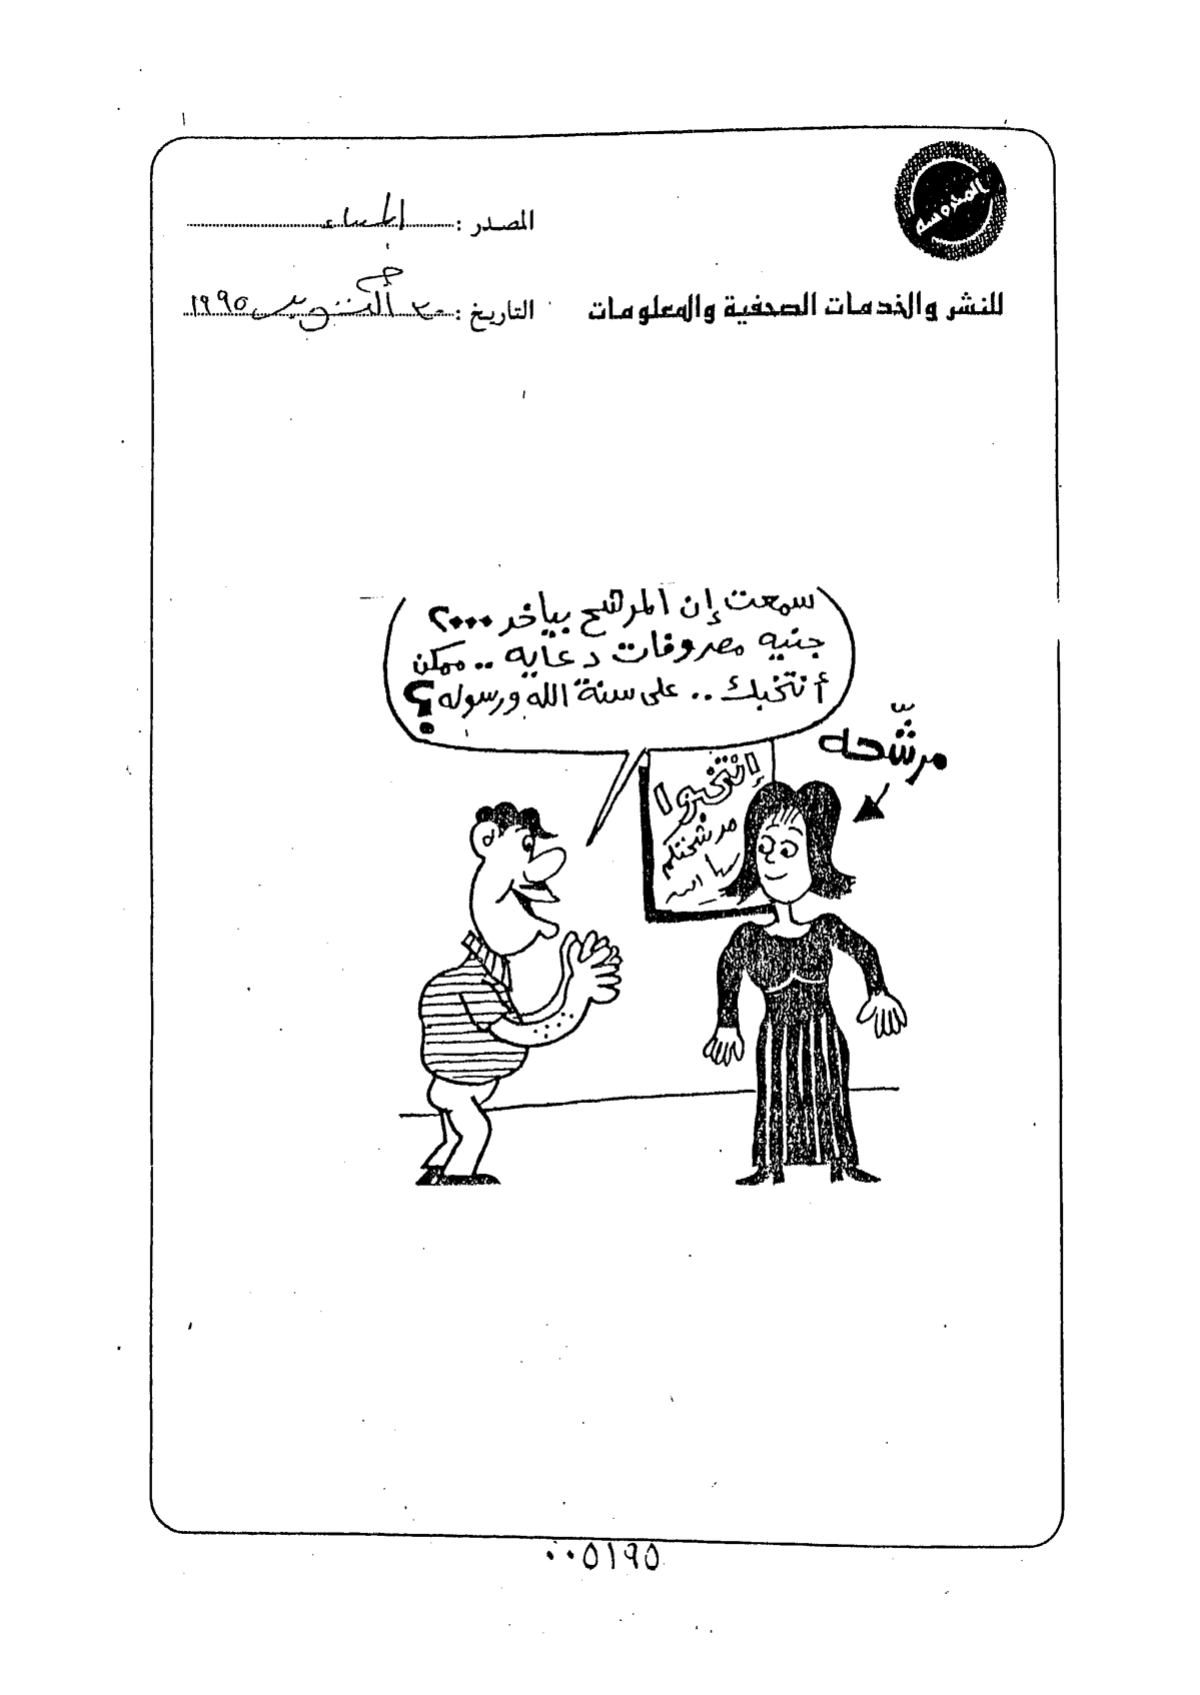 المحروسة
المصدر : المساء
للنشر والخدمات الصحفية والمعلومات
التاريخ : ٣٠ أكتوبر ١٩٩٥
سمعت إن المرشح بياخد ٢٠٠٠
جنيه مصروفات دعايه .. ممكن
أنتخبك .. على سنة الله ورسوله ؟
مرشّحه
إنتخبوا
مرشحتكم
٠٠٥١٩٥